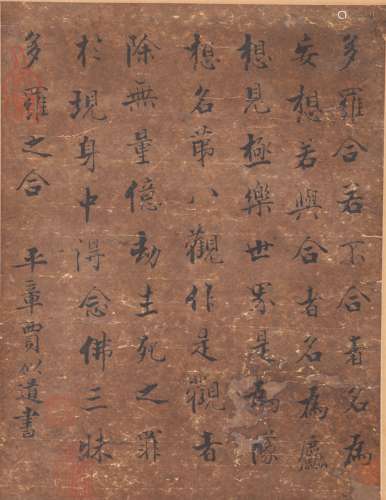 多羅合若不合者名為
妄想若與合者名為麤
想見極樂世界是為像
想名苐八觀作是觀者
除無量億劫生死之罪
於現身中得念佛三昧
多羅之合
平章賈似道書